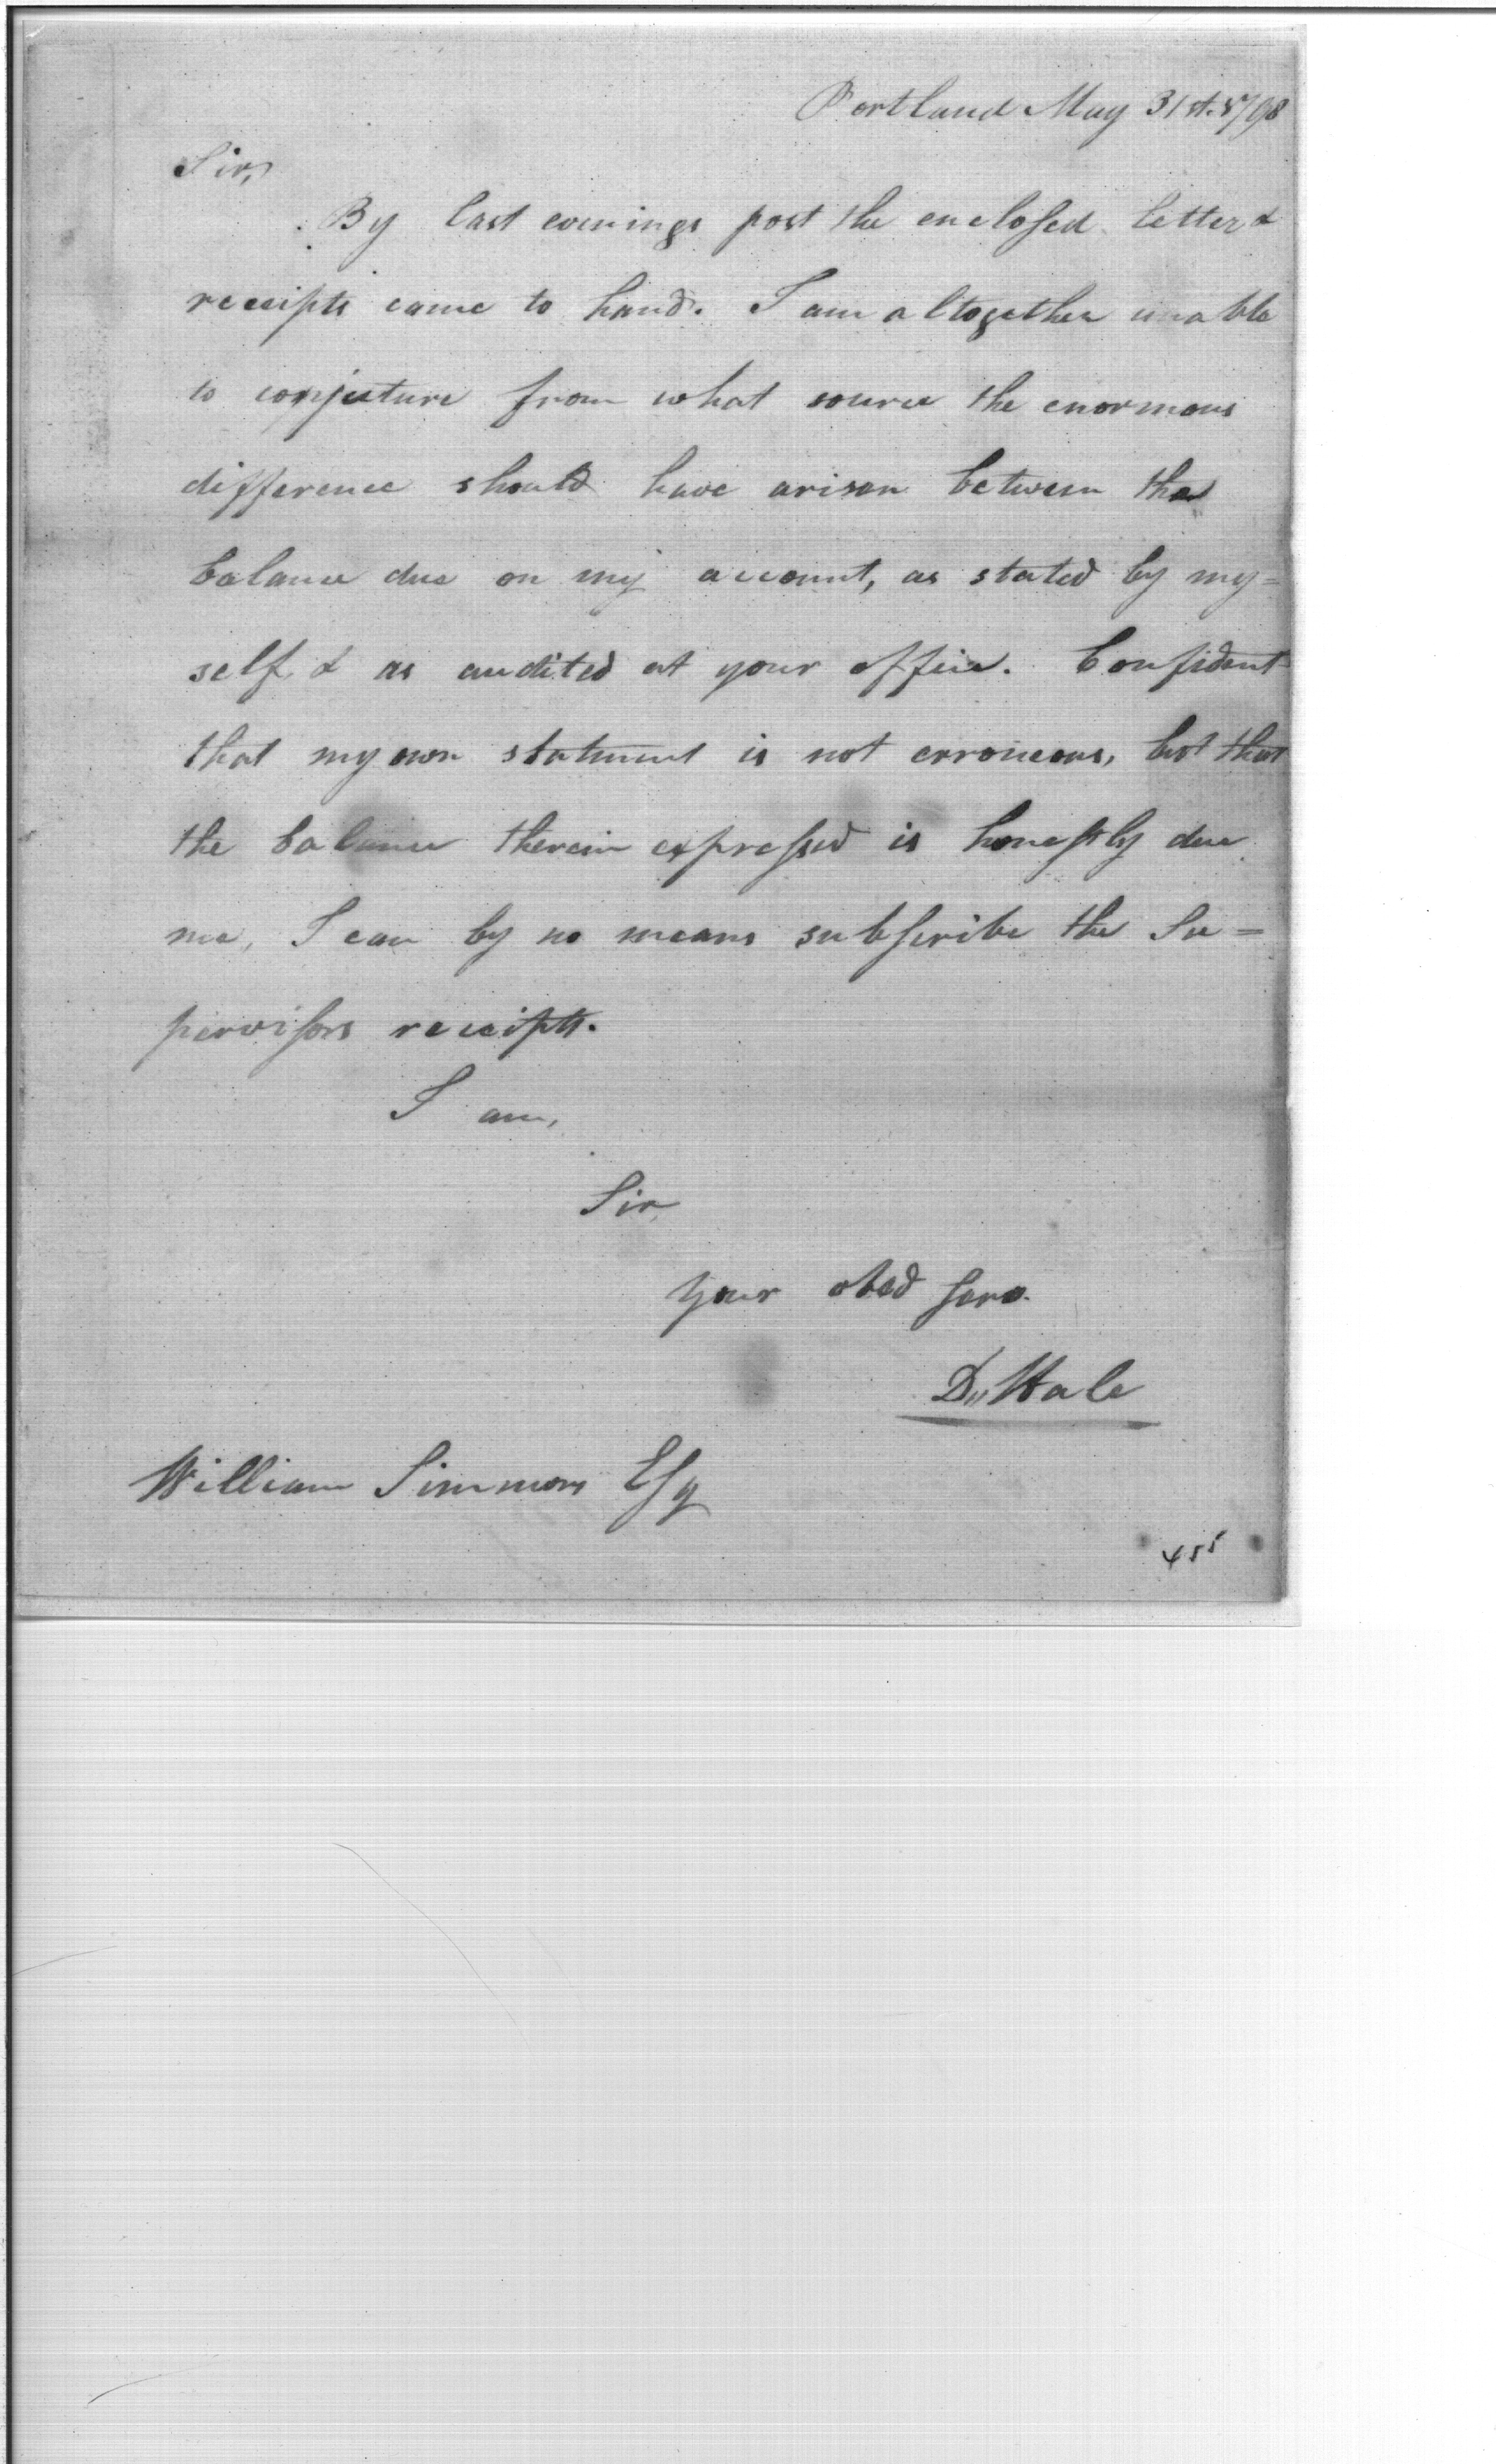 Portland May 31st. 1798
Sir,
By last evenings post the enclosed letter &
receipts came to hand. I am altogether unable
to conjecture from what source the enormous
difference should have arisen between the
balance due on my account, as stated by my=
self, & as audited at your office. Confident
that my own statment is not erroneous, but that
the balance therein expressed is honestly due
me, I can by no means subscribe the Su=
pervisors receipts.
I am,
Sir,
your obed serv.
D. Hale
William Simmons Esq
455